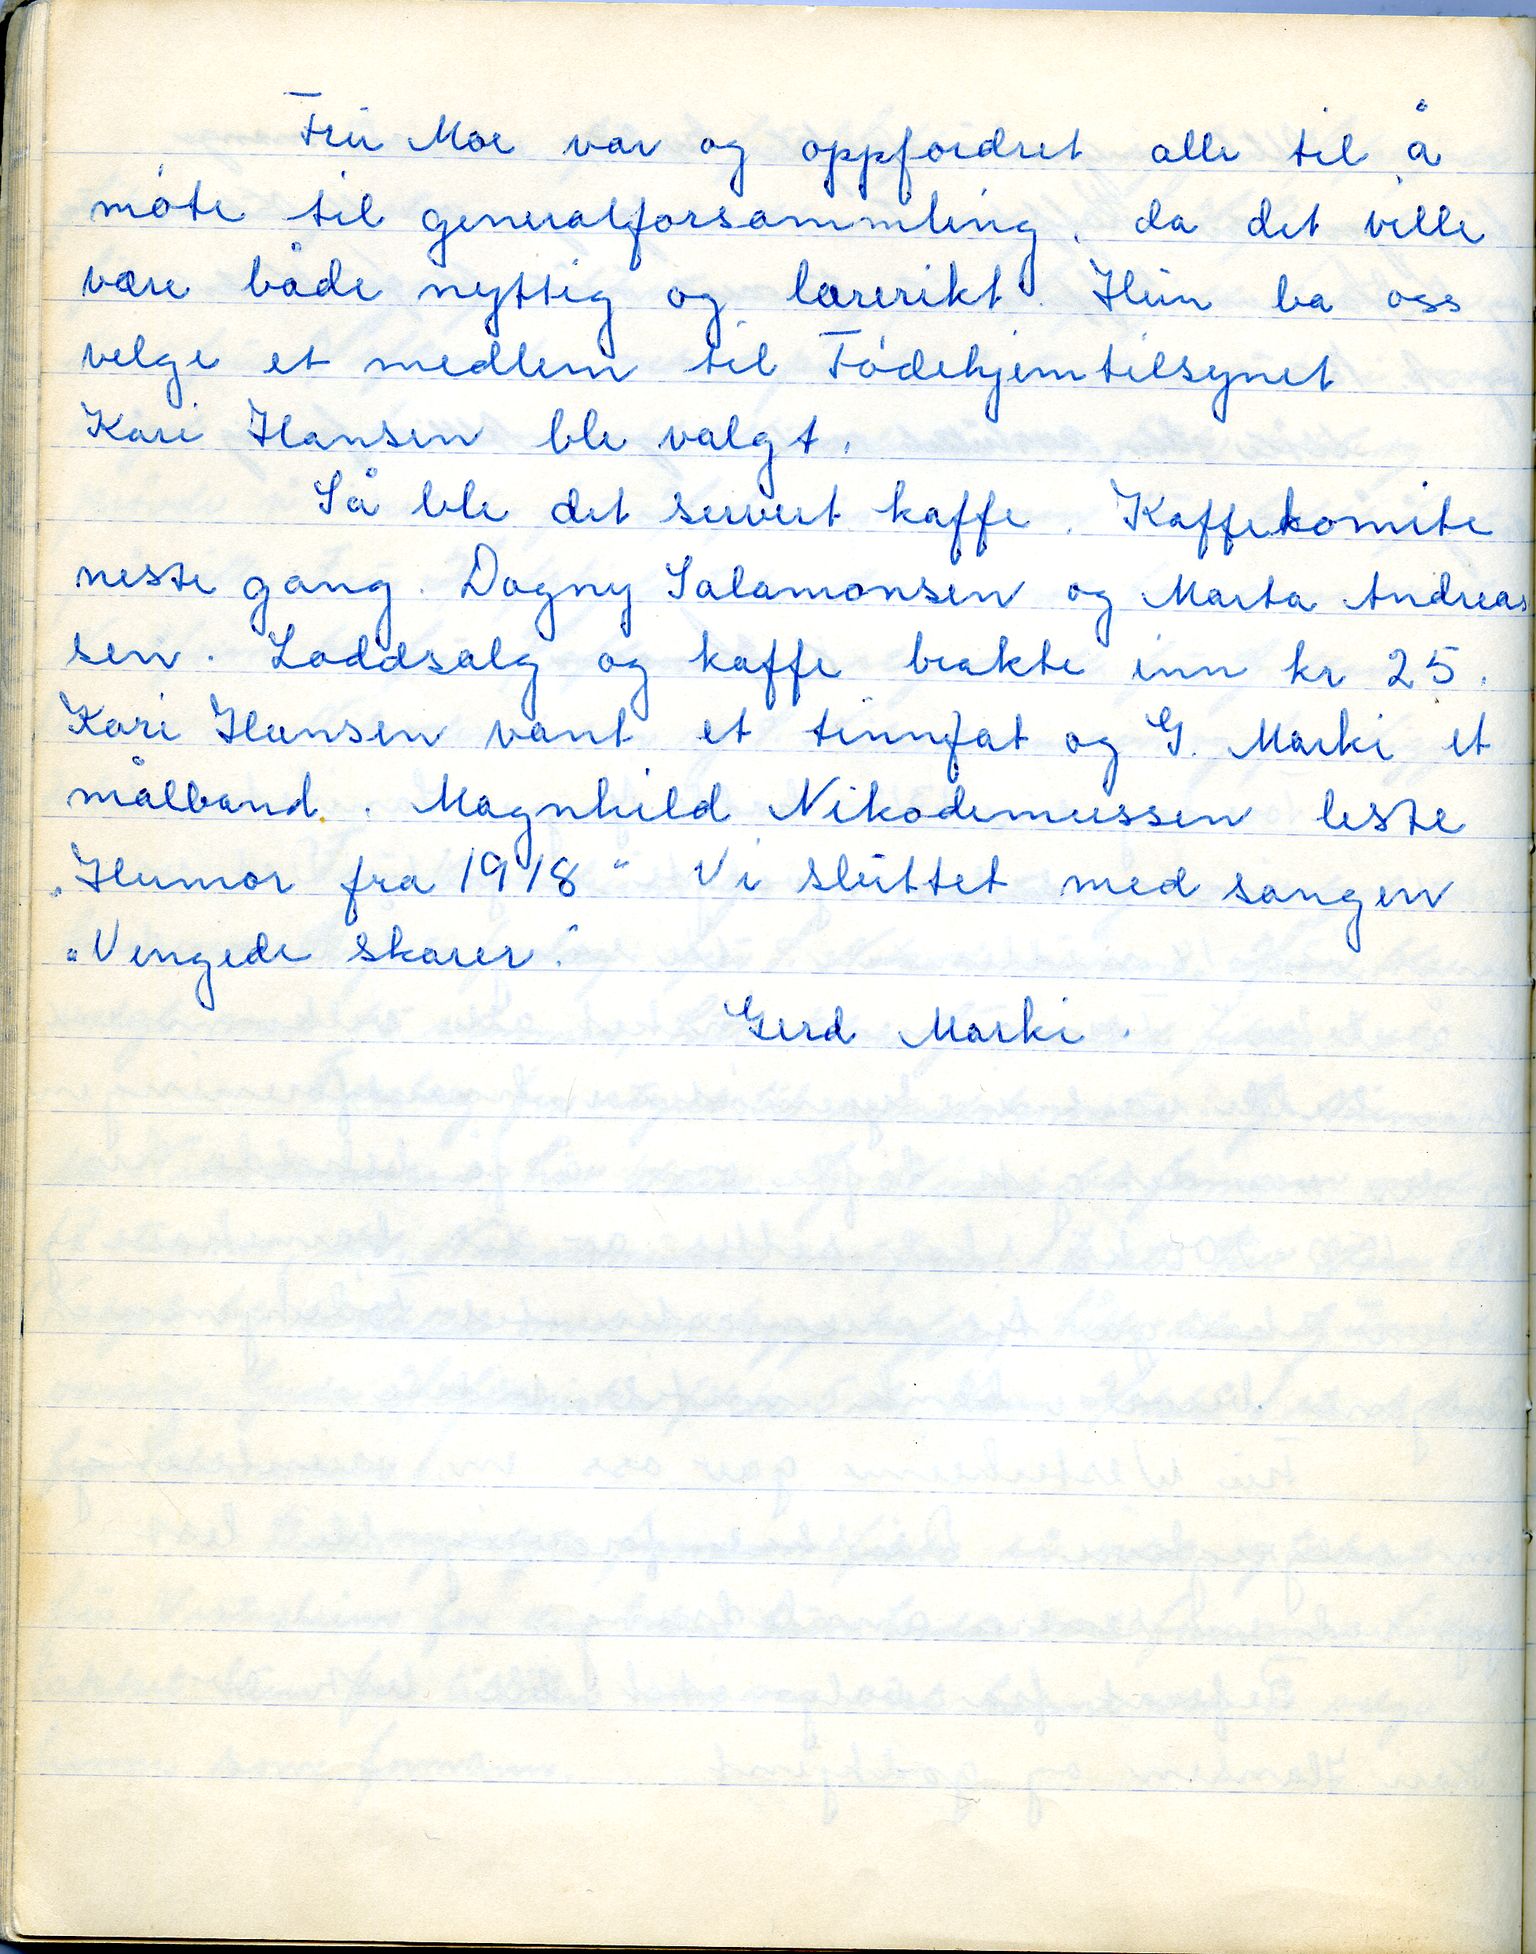 Fru Moe var og oppfordret alle til å
møte til generalforsammling, da det ville
være både nyttig og lærerikt. Hun ba oss
velge et medlem til Fødehjemtilsynet
Kari Hansen ble valgt.
Så ble det servert kaffe. Kaffekomite
neste gang. Dagny Salamonsen og Marta Andreas
sen. Loddsalg og kaffe brakte inn kr 25.
Kari Hansen vant et tinnfat og G. Marki et
målband. Magnhild Nikodemussen leste
„Humor fra 1918" Vi sluttet med sangen
„Vengede skarer."
Gerd Marki.